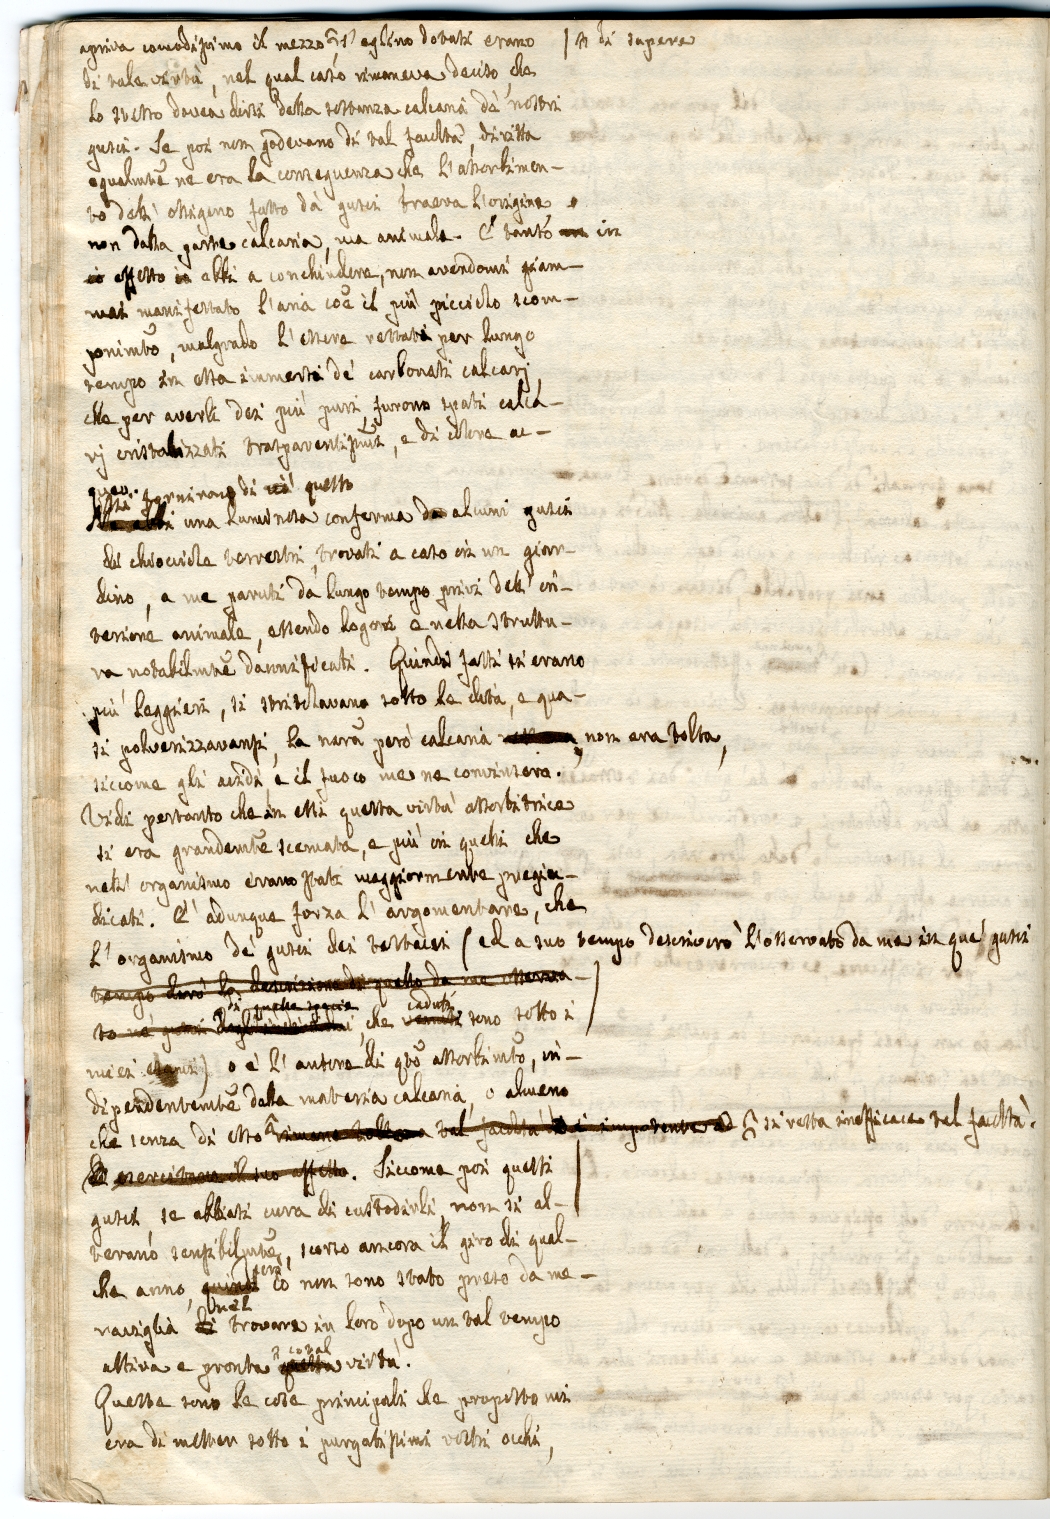 apriva comodissimo il mezzo s' eglino dotati erano / di sapere
di tale virtù, nel qual caso rimaneva deciso, che
lo stesso dovea dirsi della sostanza calcaria de' nostri
gusci. Se poi non godevano di tal facoltà, diritta
egualmte ne era la conseguenza che l'assorbimen-
to dell' ossigeno fatto da' gusci traeva l'origine
non dalla parte calcaria, ma animale. E tanto in
effetto ebbi a conchiudere, non avendomi giam-
mai manifestato l'aria coe il più picciolo scom-
ponimto, malgrado l'essere restati per lungo
tempo in essa immersi de' carbonati calcarj,
che per averli dei più puri furono spati calca-
rj cristalizzati trasparentissimi, e di colore ac-
queo.
fornirono di questo
una luminosa conferma alcuni gusci
di chiocciole terrestri, trovati a caso in un giar-
dino, a me paruti da lungo tempo privi dell' in-
terione animale, essendo logori, e nella struttu-
ra notabilmte dannificati. Quindi fatti si erano
più leggieri, si stritolavano sotto le dita, e qua-
si polverizzavansi, la nara però calcaria non era tolta,
siccome gli acidi, e il fuoco me ne convinsero.
Vidi pertanto che in essi questa virtù assorbitrice
si era grandemte scemata, e più in quelli che
nell' organismo erano stati maggiormente pregiu-
dicati. E' adunque forza l' argomentare, che
l'organismo de' gusci dei testacei (ed a suo tempo descriverò l'osservato da me in que' gusci
tempo dirò la descrizione di quello da me osserva-
di qualche specie caduti
to ne' gusci , che venuti sono sotto i
miei esami) o è l' autore di qto assorbimto, in-
dipendentemte dalla materia calcaria, o almeno
che senza di esso rimane tolta a tal facoltà si resta inefficace tal facoltà.
esercitare il suo effetto. Siccome poi questi
gusci, se abbiasi cura di custodirli, non si al-
terano sensibilmte, scorso ancora il giro di qual-
che anno, quindi io non sono stato preso da me-
nel
raviglia di trovare in loro dopo un tal tempo
cotal
attiva e pronta quella virtù.
Queste sono le cose principali che proposto mi
era di metter sotto i purgatissimi vostri occhi,